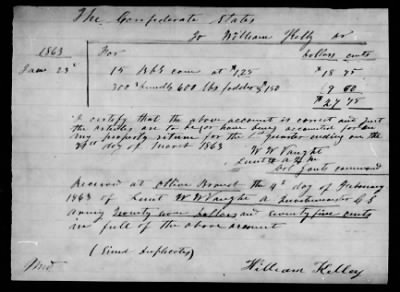 The Confederate States
To William Kelly Dr
1863 For Dollars cents
Jany 23d 15 Bbls corn at $1.25 $18 75
300 bundles 600 lbs fodder $1.50 9 00
$27 75
I certify that the above account is correct and just
the articles are to be (or have been) accounted for on
my property return for the quarter ending on the
31st day of March 1863
W W Vaught
Lieut A Q M
Col command
Received at the 4th day of February
1863 of Lieut W W Vaught A Quartermaster C S
Army Twenty seven dollars and seventy five cents
in full of the above account
(Signed Duplicates)
William Kelley